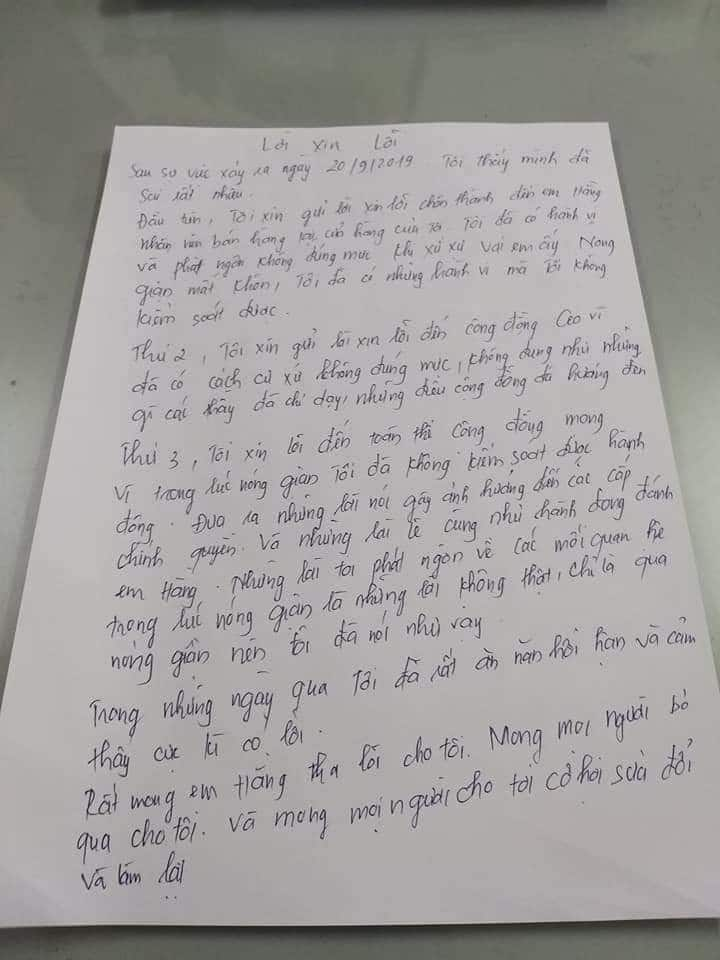 Lời xin lỗi
Sau sự việc xảy ra ngày 20/9/2019 Tôi thấy mình đã
sai rất nhiều.
Đầu tiên, Tôi xin gửi lời xin lỗi chân thành đến em Hằng
nhân viên bán hàng tại cửa hàng của tôi. Tôi đã có hành vi
và phát ngôn không đúng mực khi xử sự với em ấy. Nóng
giận mất khôn, Tôi đã có những hành vi mà tôi không
kiểm soát được.
Thứ 2, Tôi xin gửi lời xin lỗi đến cộng đồng Ceo vì
đã có cách cư xử không đúng mực, không đúng như những
gì các thầy đã chỉ dạy, những điều cộng đồng đã hướng đến
Thứ 3, Tôi xin lỗi đến toàn thể cộng đồng mạng
Vì trong lúc nóng giận Tôi đã không kiểm soát được hành
động. Đưa ra những lời nói gây ảnh hưởng đến các cấp
chính quyền. Và những lời lẽ cũng như hành động đánh
em Hằng. Những lời tôi phát ngôn về các mối quan hệ
trong lúc nóng giận là những lời không thật, chỉ là quá
nóng giận nên tôi đã nói như vậy
Trong những ngày qua Tôi đã rất ăn năn hối hận và cảm
thấy cực kì có lỗi.
Rất mong em Hằng tha lỗi cho tôi. Mong mọi người bỏ
qua cho tôi. Và mong mọi người cho tôi cơ hội sửa đổi
Và làm lại